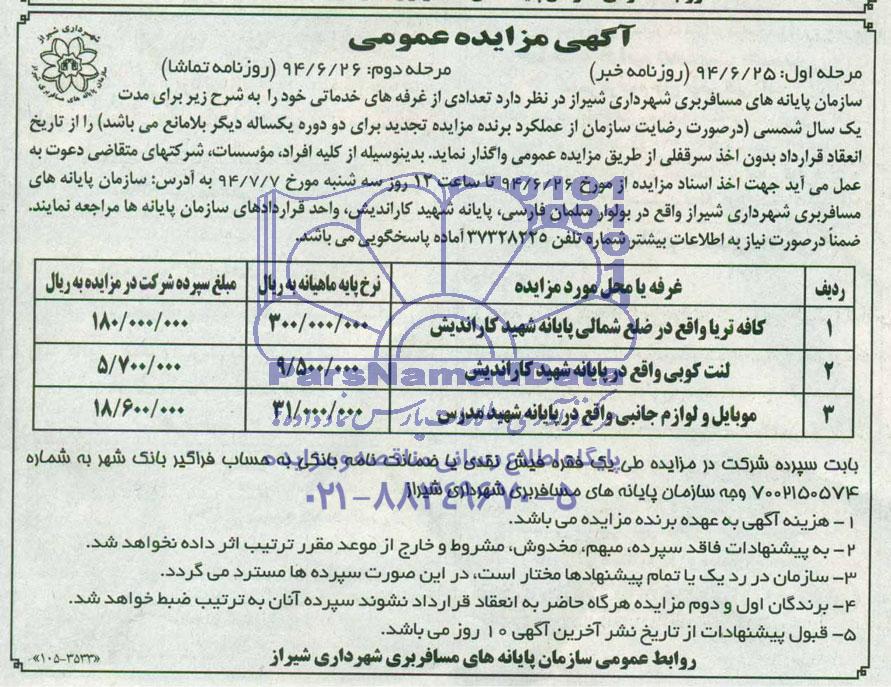 شهرداری شیراز
سازمان پایانه های مسافربری شیراز
آگهی مزایده عمومی
مرحله اول: ۹۴/۶/۲۵ (روزنامه خبر) مرحله دوم: ۹۴/۶/۲۶ (روزنامه تماشا)
سازمان پایانه های مسافربری شهرداری شیراز در نظر دارد تعدادی از غرفه های خدماتی خود را به شرح زیر برای مدت
یک سال شمسی (درصورت رضایت سازمان از عملکرد برنده مزایده تجدید برای دو دوره یکساله دیگر بلامانع می باشد) را از تاریخ
انعقاد قرارداد بدون اخذ سرقفلی از طریق مزایده عمومی واگذار نماید. بدینوسیله از کلیه افراد، مؤسسات، شرکتهای متقاضی دعوت به
عمل می آید جهت اخذ اسناد مزایده از مورخ ۹۴/۶/۲۶ تا ساعت ۱۳ روز سه شنبه مورخ ۹۴/۷/۷ به آدرس: سازمان پایانه های
مسافربری شهرداری شیراز واقع در بولوار سلمان فارسی، پایانه شهید کاراندیش، واحد قراردادهای سازمان پایانه ها مراجعه نمایند.
ضمناً درصورت نیاز به اطلاعات بیشتر شماره تلفن ۳۷۳۲۸۲۲۵ آماده پاسخگویی می باشد.
ردیف غرفه یا محل مورد مزایده نرخ پایه ماهیانه به ریال مبلغ سپرده شرکت در مزایده به ریال
۱ کافه تریا واقع در ضلع شمالی پایانه شهید کاراندیش ۳۰۰/۰۰۰/۰۰۰ ۱۸۰/۰۰۰/۰۰۰
۲ لنت کوبی واقع در پایانه شهید کاراندیش ۹/۵۰۰/۰۰۰ ۵/۷۰۰/۰۰۰
۳ موبایل و لوازم جانبی واقع در پایانه شهید مدرس ۳۱/۰۰۰/۰۰۰ ۱۸/۶۰۰/۰۰۰
ParsNamadData
پایگاه اطلاع رسانی مناقصه و مزایده
۰۲۱-۸۸۳۴۹۶۷۰-۵
بابت سپرده شرکت در مزایده طی یک فقره فیش نقدی یا ضمانت نامه بانکی به حساب فراگیر بانک شهر به شماره
۷۰۰۲۱۵۰۵۷۴ وجه سازمان پایانه های مسافربری شهرداری شیراز
۱- هزینه آگهی به عهده برنده مزایده می باشد.
۲- به پیشنهادات فاقد سپرده، مبهم، مخدوش، مشروط و خارج از موعد مقرر ترتیب اثر داده نخواهد شد.
۳- سازمان در رد یک یا تمام پیشنهادها مختار است، در این صورت سپرده ها مسترد می گردد.
۴- برندگان اول و دوم مزایده هرگاه حاضر به انعقاد قرارداد نشوند سپرده آنان به ترتیب ضبط خواهد شد.
۵- قبول پیشنهادات از تاریخ نشر آخرین آگهی ۱۰ روز می باشد.
روابط عمومی سازمان پایانه های مسافربری شهرداری شیراز
«۱۰۵-۳۵۳۳»